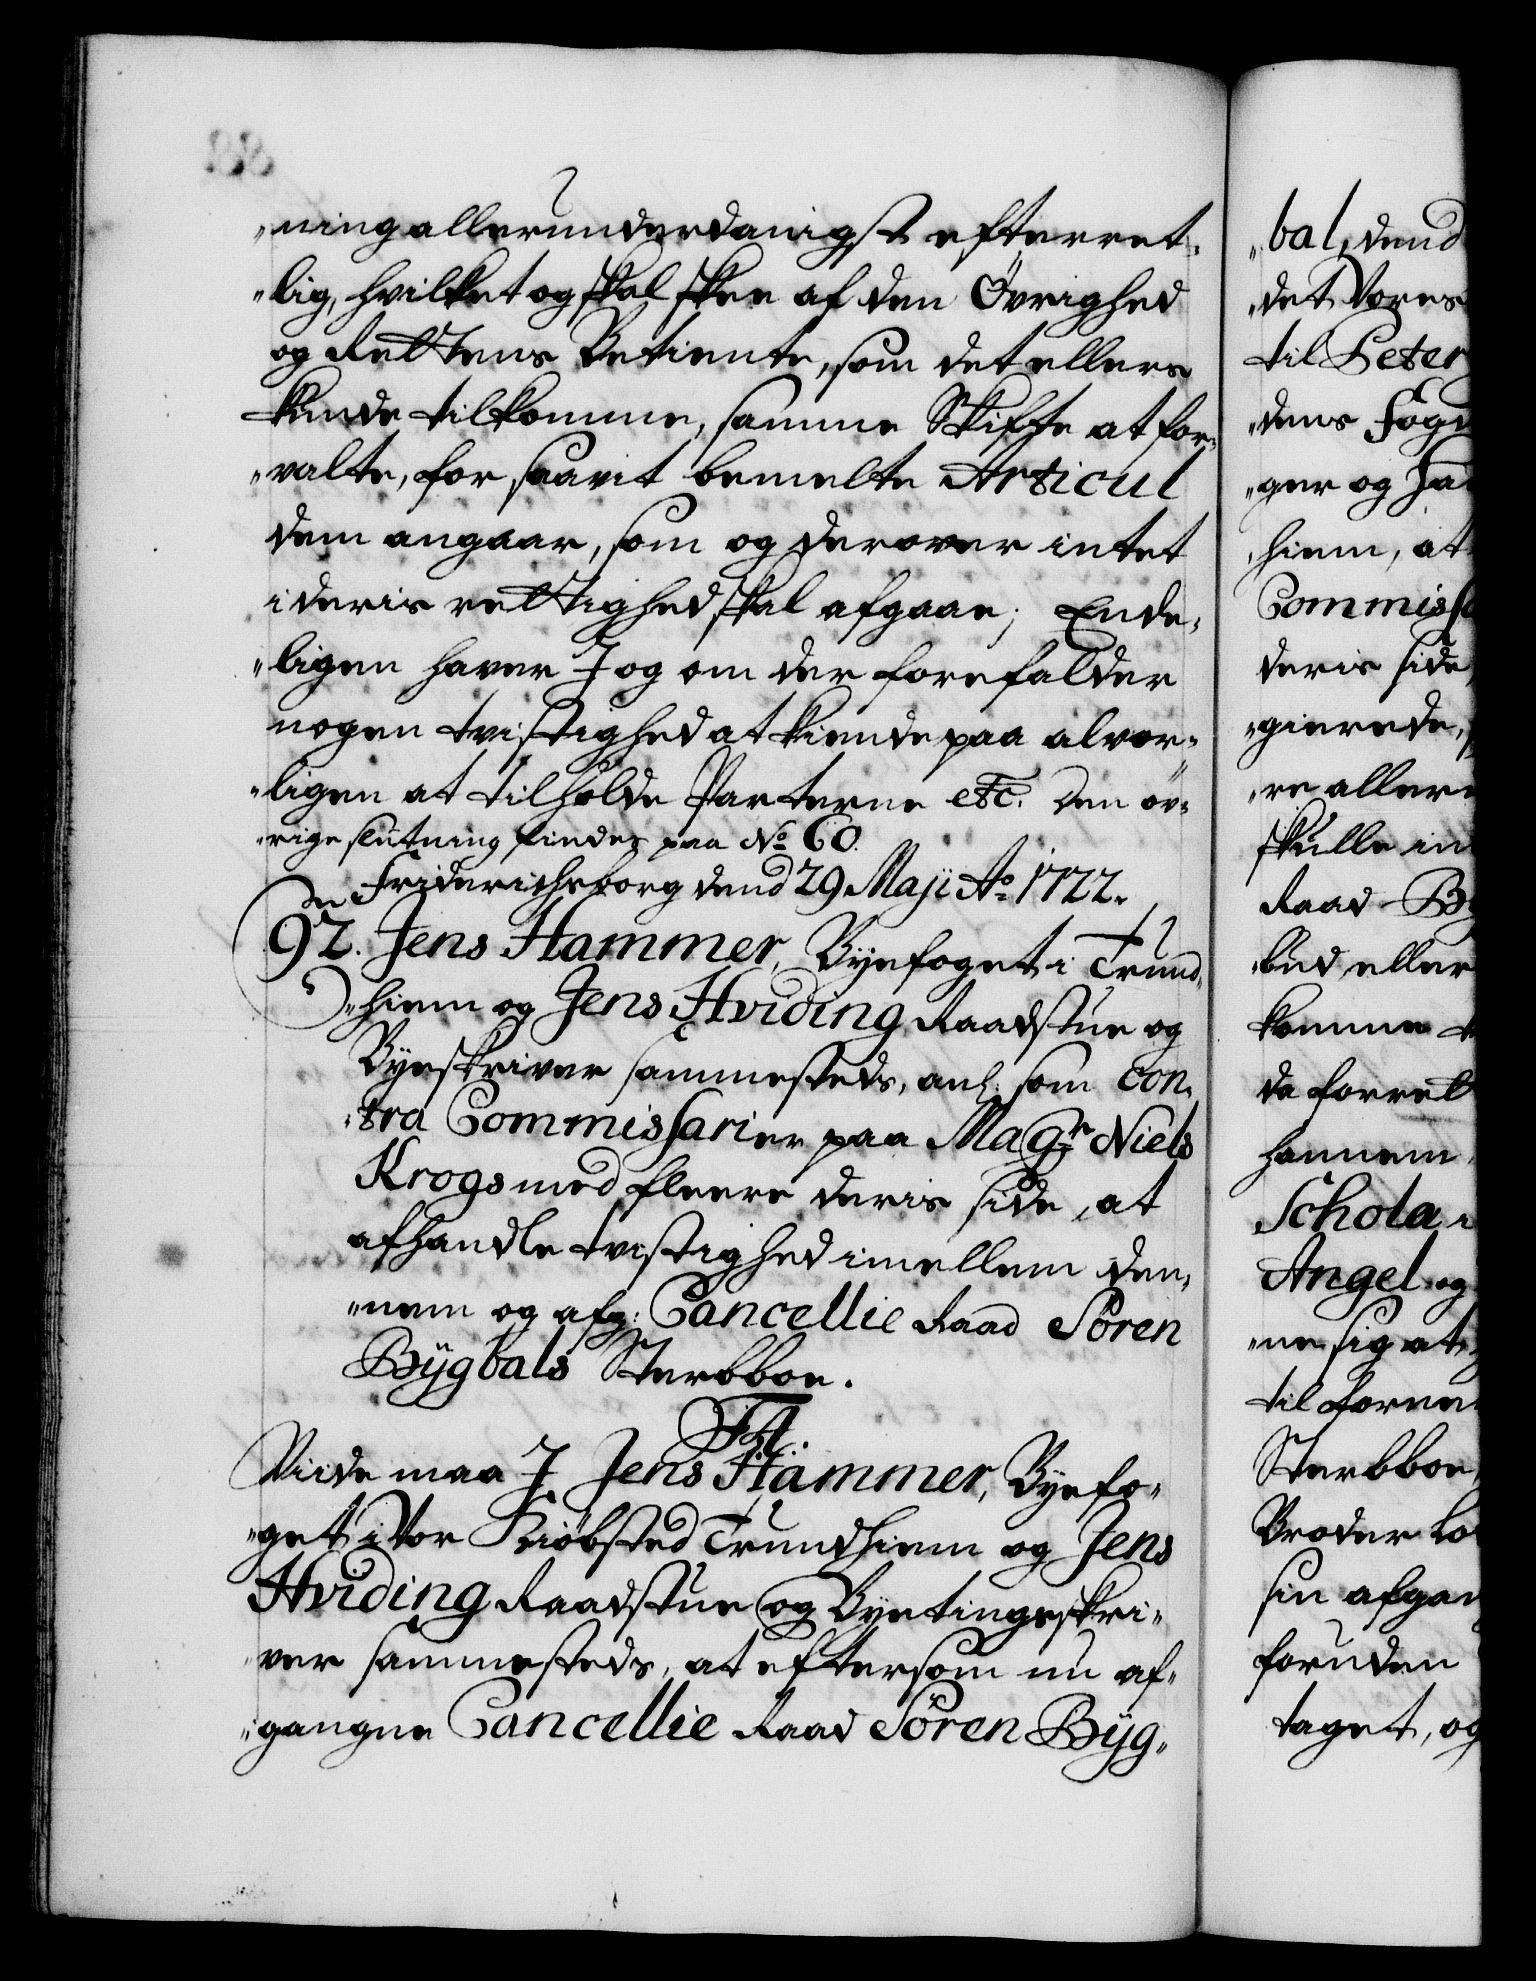 "ning allerunderdanigst efterret-
"lig, hvilket og skal skee af den Øvrighed
og Rettens Betiente, som det ellers
kunde tilkomme, samme Skifte at for-
"valte, for saavit bemelte Articul
dem angaar, som og derover intet
i deris rettighed skal afgaae; Ende-
"ligen haver I og om der forefalder
nogen tvistighed at kiende paa alvor-
"ligen at tilholde Parterne etc. Den öv-
"rige slutning findes paa No 60.
Friderichsborg dend 29 Maji Ao 1722.
92. Jens Hammer, Byefoget i Trund-
"hiem og Jens Hviding Raadstue og
Byeskriver sammesteds, anl: som Con-
"tra Commissarier paa Magr Niels
Krogs med fleere deris side, at
afhandle tvistighed imellem den-
"nem og afg: Cancellie Raad Sören
Bÿgbals Sterbboe.
F4.
Viide maa I Jens Hammer, Byefo-
"get i Vor Kiöbsted Trundhiem og Jens
Hviding Raadstue og Byetingskri-
ver sammesteds, at eftersom nu af-
"gangne Cancellie Raad Sören Bÿg-
"bal, dend
"det Vores
til Peter
"dens Fog
"ger og Ha
"hiem, at
Commissa
deris side
"gierede,
"re aller
skulle in
Raad By
"bud eller
komme
da forrett
hannem
Schola
Angel og
"ne sig at
til forne
Sterbboe
Broder Lo
sin afgan
foruden
taget, og